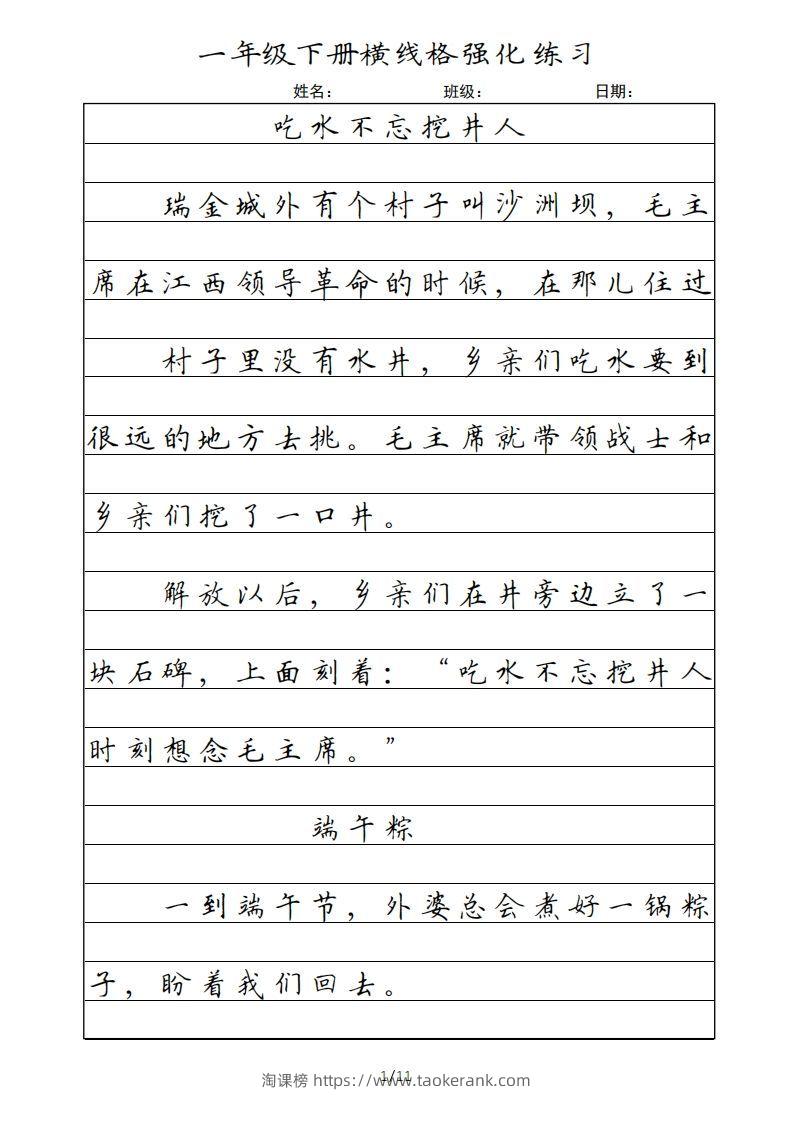 一年级下册横线格强化练习
姓名： 班级： 日期：
吃水不忘挖井人
瑞金城外有个村子叫沙洲坝，毛主
席在江西领导革命的时候，在那儿住过
村子里没有水井，乡亲们吃水要到
很远的地方去挑。毛主席就带领战士和
乡亲们挖了一口井。
解放以后，乡亲们在井旁边立了一
块石碑，上面刻着：“吃水不忘挖井人
时刻想念毛主席。”
端午粽
一到端午节，外婆总会煮好一锅粽
子，盼着我们回去。
1/11
淘课榜 https://www.taokerank.com